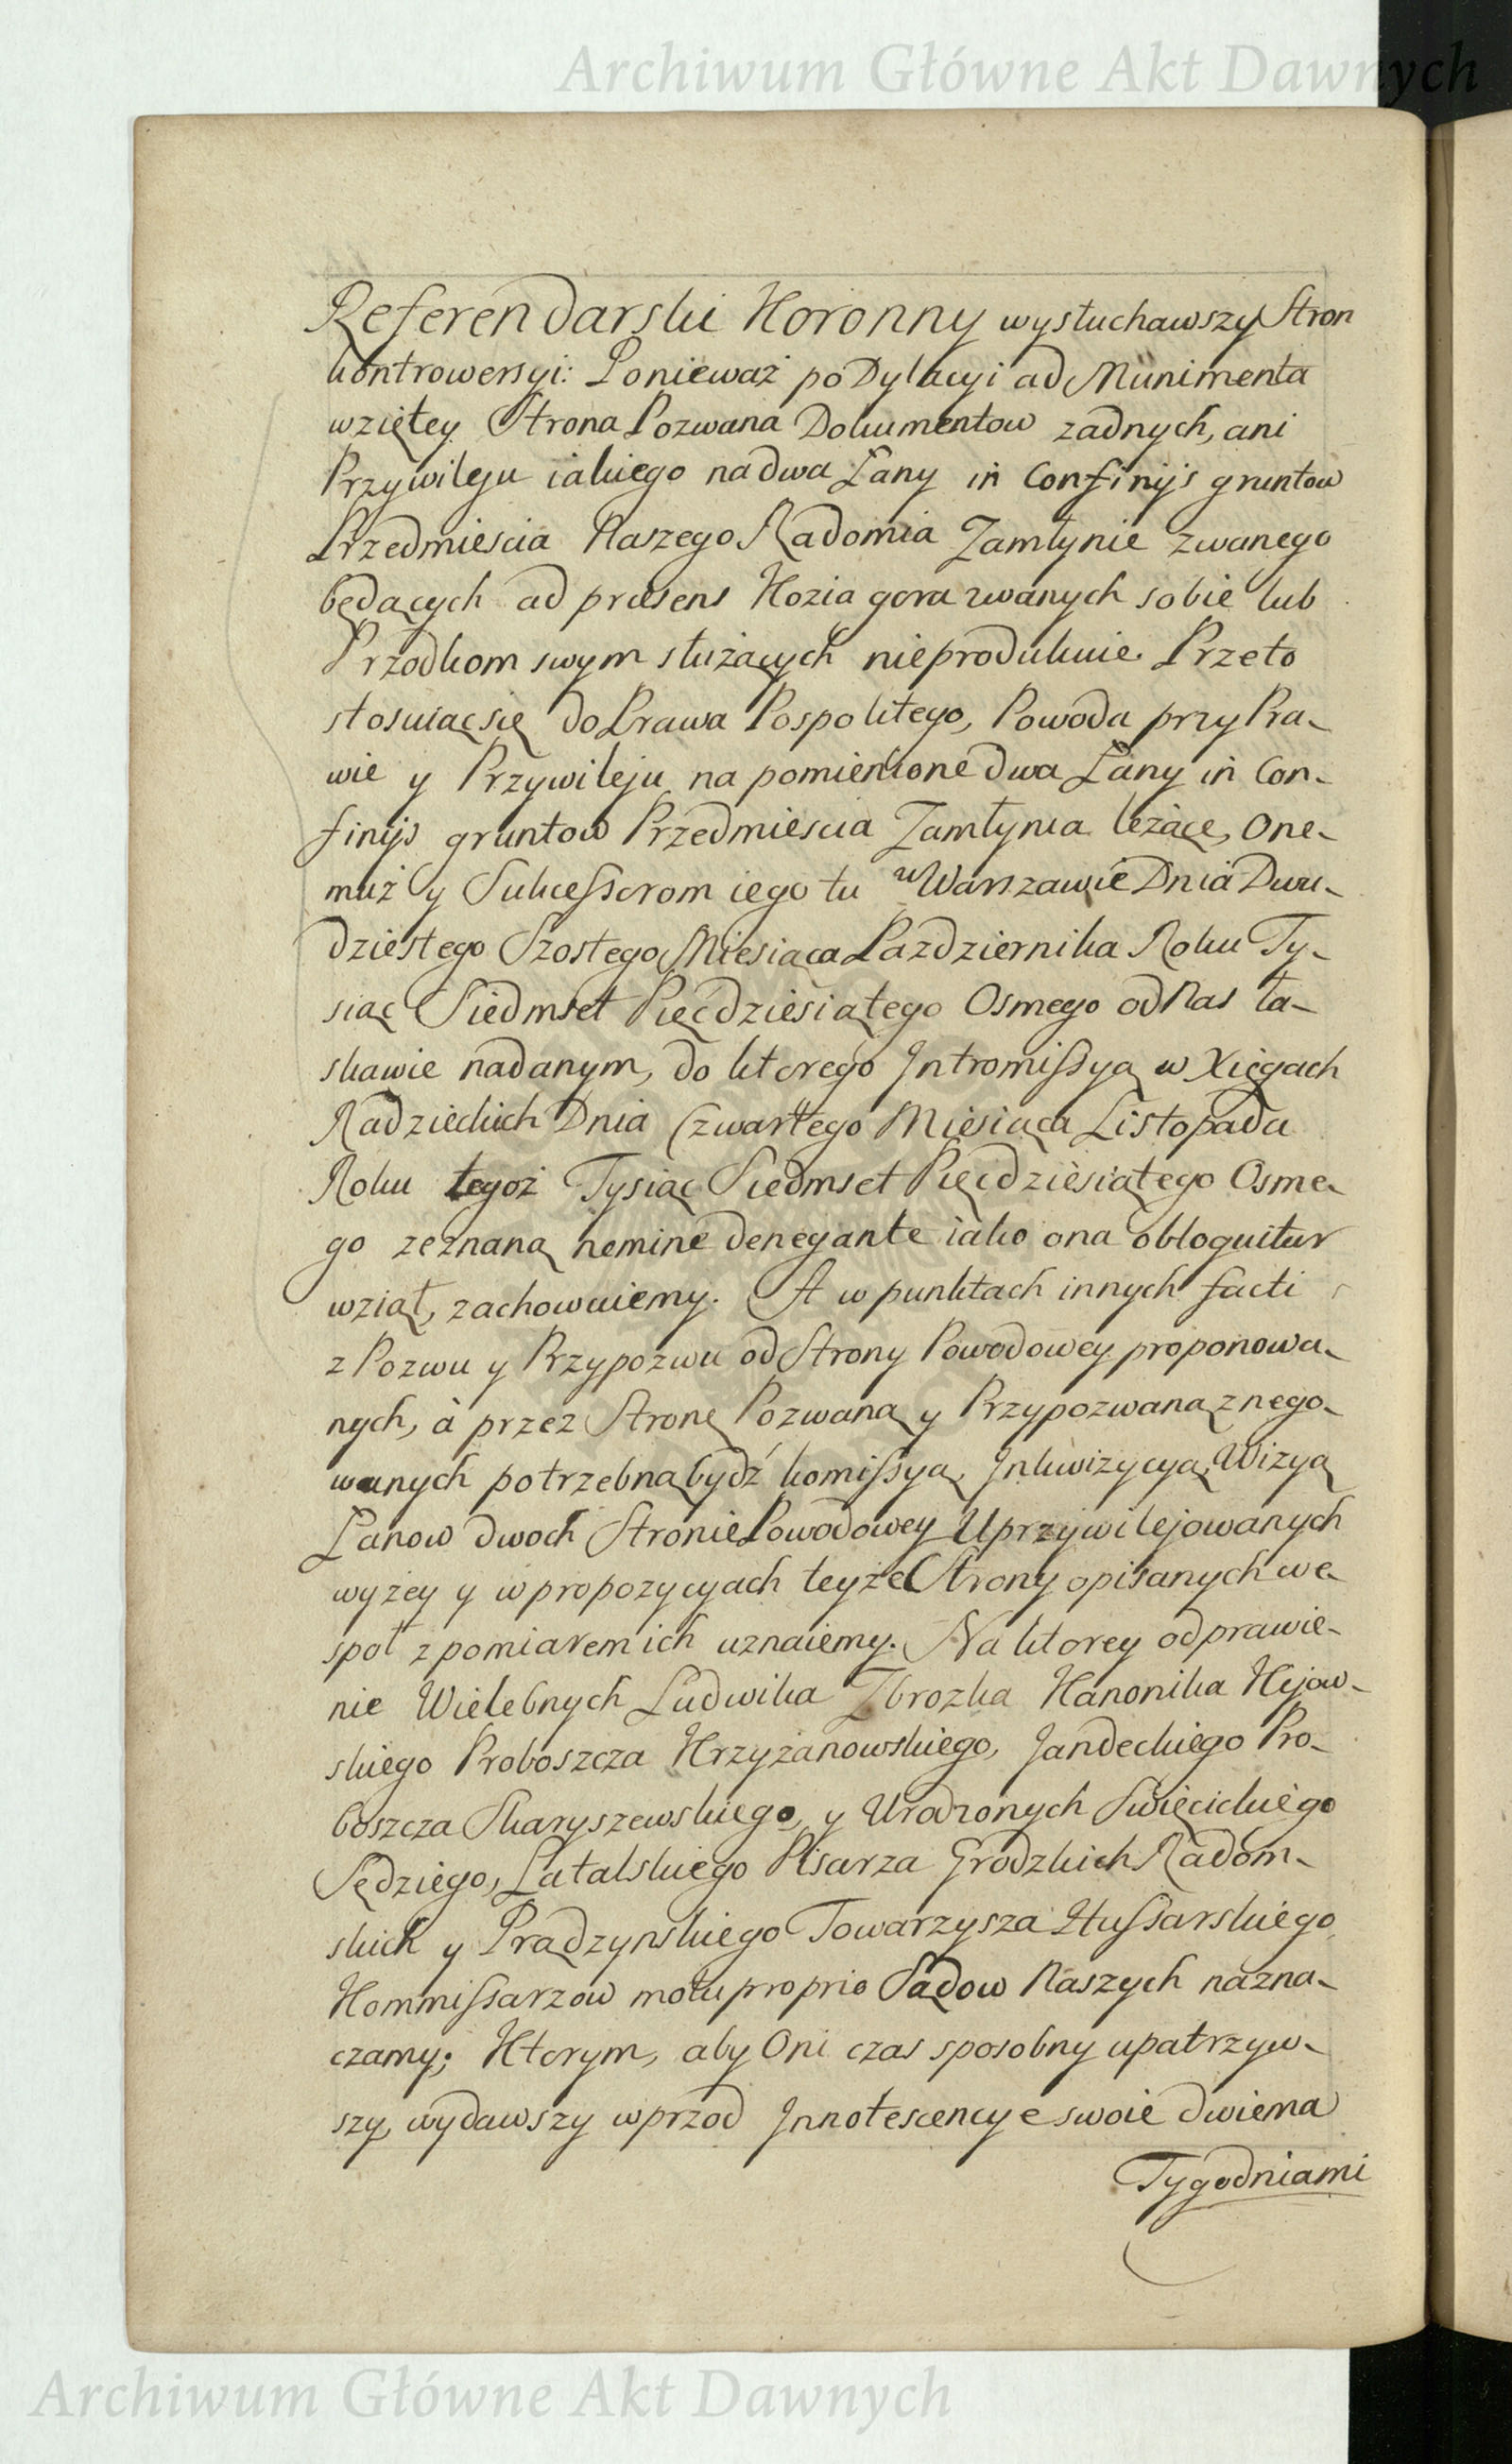 Archiwum Główne Akt Dawnych
Referendarski Koronny wysłuchawszy Stron
kontrowersyi: Ponieważ po Dylacyi ad Munimenta
wziętey Strona Pozwana Dokumentow zadnych, ani
Przywileju iakiego na dwa Łany in Confinijs gruntow
Przedmiescia Naszego Radomia Zamłynie zwanego
będących ad præsens Kozia gora zwanych sobie lub
Przodkom swym służących nieprodukuie. Przeto
stosuiąc się do Prawa Pospolitego, Powoda przy Pra-
wie y Przywileju na pomienione dwa Łany in Con-
finijs gruntow Przedmiescia Zamłynia leżące, One-
muż y Sukcessorom iego tu w Warszawie Dnia Dwu-
dziestego Szostego Miesiąca Pazdziernika Roku Ty-
siąc Siedmset Pięcdziesiątego Osmego od Nas ła-
skawie nadanym, do ktorego Intromissyą w Xięgach
Radzieckich Dnia Czwartego Miesiąca Listopada
Roku tegoż Tysiąc Siedmset Pięcdziesiątego Osme-
go zeznaną nemine denegante iako ona obloquitur
wziął, zachowuiemy. A w punktach innych facti
z Pozwu y Przypozwu od Strony Powodowey proponowa-
nych, à przez Stronę Pozwaną y Przypozwaną znego-
wanych potrzebną bydź komissyą, Inkwizycyą, Wizyą
Łanow dwoch Stronie Powodowey Uprzywilejowanych
wyżey y w propozycyach teyże Strony opisanych we-
społ z pomiarem ich uznaiemy. Na ktorey odprawie-
nie Wielebnych Ludwika Zbrozka Kanonika Kijow-
skiego Proboszcza Krzyżanowskiego, Jandeckiego Pro-
boszcza Skaryszewskiego, y Urodzonych Swięcickiego
Sędziego, Latalskiego Pisarza Grodzkich Radom-
skich y Prądzynskiego Towarzysza Hussarskiego
Kommissarzow motu proprio Sądow Naszych nazna-
czamy; Ktorym, aby Oni czas sposobny upatrzyw-
szy, wydawszy wprzod Innotescencye swoie dwiema
Tygodniami
Archiwum Główne Akt Dawnych